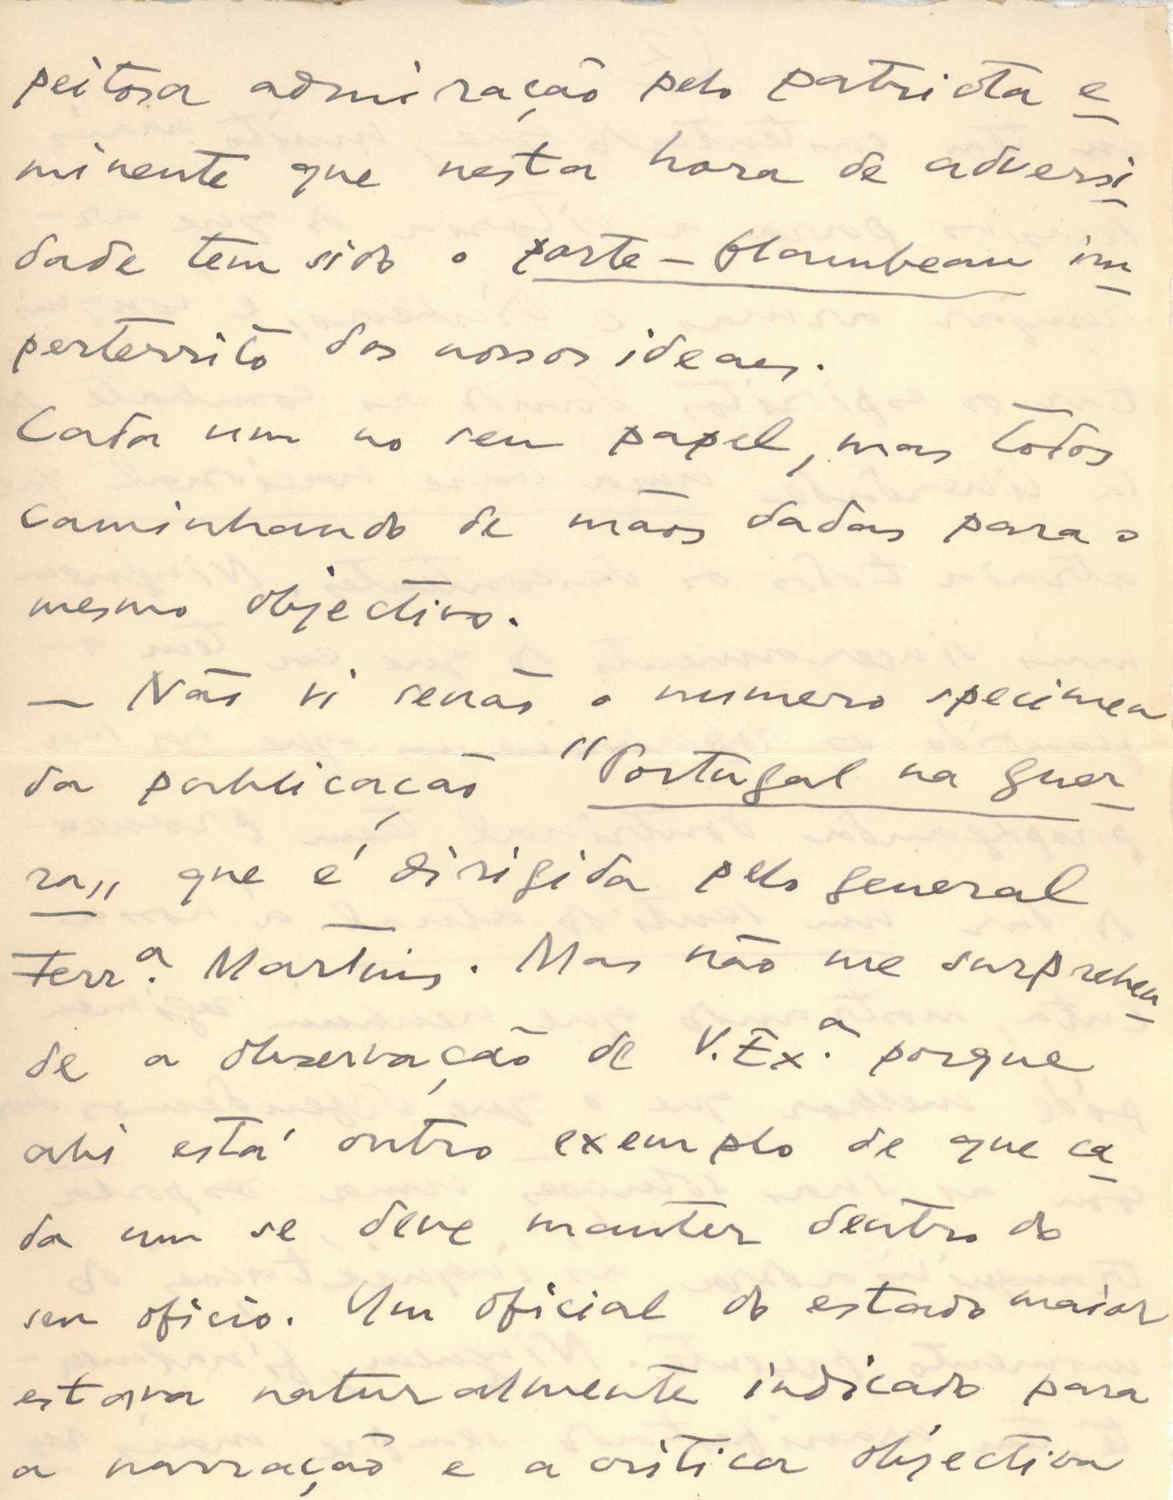 peitosa admiração pelo patriota e
minente que nesta hora de adversi
dade tem sido o porte-flambeau im
perterrito dos nossos ideaes.
Cada um no seu papel, mas todos
caminhando de mãos dadas para o
mesmo objectivo.
— Não vi senão o numero specimen
da publicação "Portugal na guer
ra„ que é dirigida pelo general
Ferr.ª Martins. Mas não me surprehen
de a observação de V. Ex.ª porque
ahi está outro exemplo de que ca
da um se deve manter dentro do
seu oficio. Um oficial do estado maior
estava naturalmente indicado para
a narração e a critica objectiva